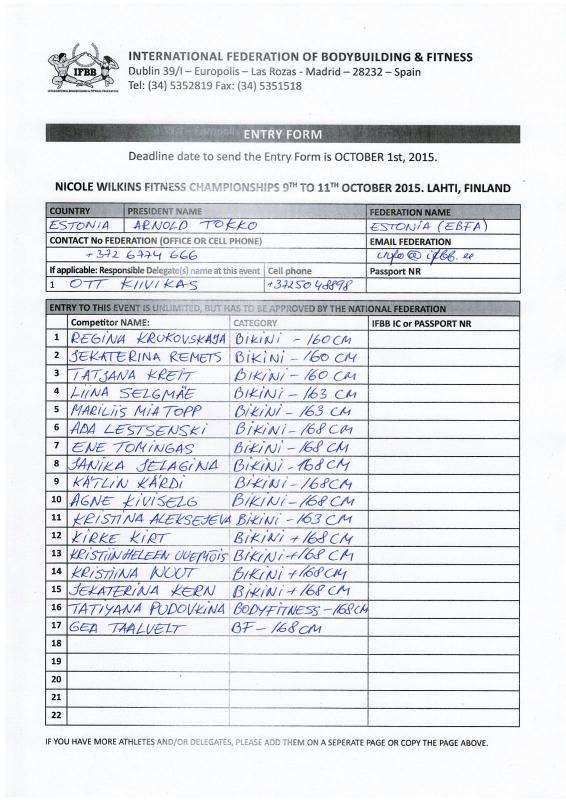 IFBB
INTERNATIONAL FEDERATION OF BODYBUILDING & FITNESS
Dublin 39/I – Europolis – Las Rozas - Madrid – 28232 – Spain
Tel: (34) 5352819 Fax: (34) 5351518
ENTRY FORM
Deadline date to send the Entry Form is OCTOBER 1st, 2015.
NICOLE WILKINS FITNESS CHAMPIONSHIPS 9TH TO 11TH OCTOBER 2015. LAHTI, FINLAND
COUNTRY PRESIDENT NAME FEDERATION NAME
ESTONIA ARNOLD TOKKO ESTONIA (EBFA)
CONTACT No FEDERATION (OFFICE OR CELL PHONE) EMAIL FEDERATION
+372 6774 666 info@ifbb.ee
If applicable: Responsible Delegate(s) name at this event Cell phone Passport NR
1 OTT KIIVIKAS +37250 48898
ENTRY TO THIS EVENT IS UNLIMITED, BUT HAS TO BE APPROVED BY THE NATIONAL FEDERATION
Competitor NAME: CATEGORY IFBB IC or PASSPORT NR
1 REGINA KRUKOVSKAJA BIKINI - 160 CM
2 JEKATERINA REMETS BIKINI - 160 CM
3 TATJANA KREIT BIKINI - 160 CM
4 LIINA SELGMÄE BIKINI - 163 CM
5 MARILIIS MIA TOPP BIKINI - 163 CM
6 ADA LESTSENSKI BIKINI - 168 CM
7 ENE TOMINGAS BIKINI - 168 CM
8 JANIKA JELAGINA BIKINI - 168 CM
9 KÄTLIN KÄRDI BIKINI - 168 CM
10 AGNE KIVISELG BIKINI - 168 CM
11 KRISTINA ALEKSEJEVA BIKINI - 163 CM
12 KIRKE KIRT BIKINI + 168 CM
13 KRISTIIN HELEEN UUEMÕIS BIKINI + 168 CM
14 KRISTIINA NUUT BIKINI + 168 CM
15 JEKATERINA KERN BIKINI + 168 CM
16 TATIYANA PUDOVKINA BODYFITNESS - 168 CM
17 GEA TAALVELT BF - 168 CM
18
19
20
21
22
IF YOU HAVE MORE ATHLETES AND/OR DELEGATES, PLEASE ADD THEM ON A SEPERATE PAGE OR COPY THE PAGE ABOVE.